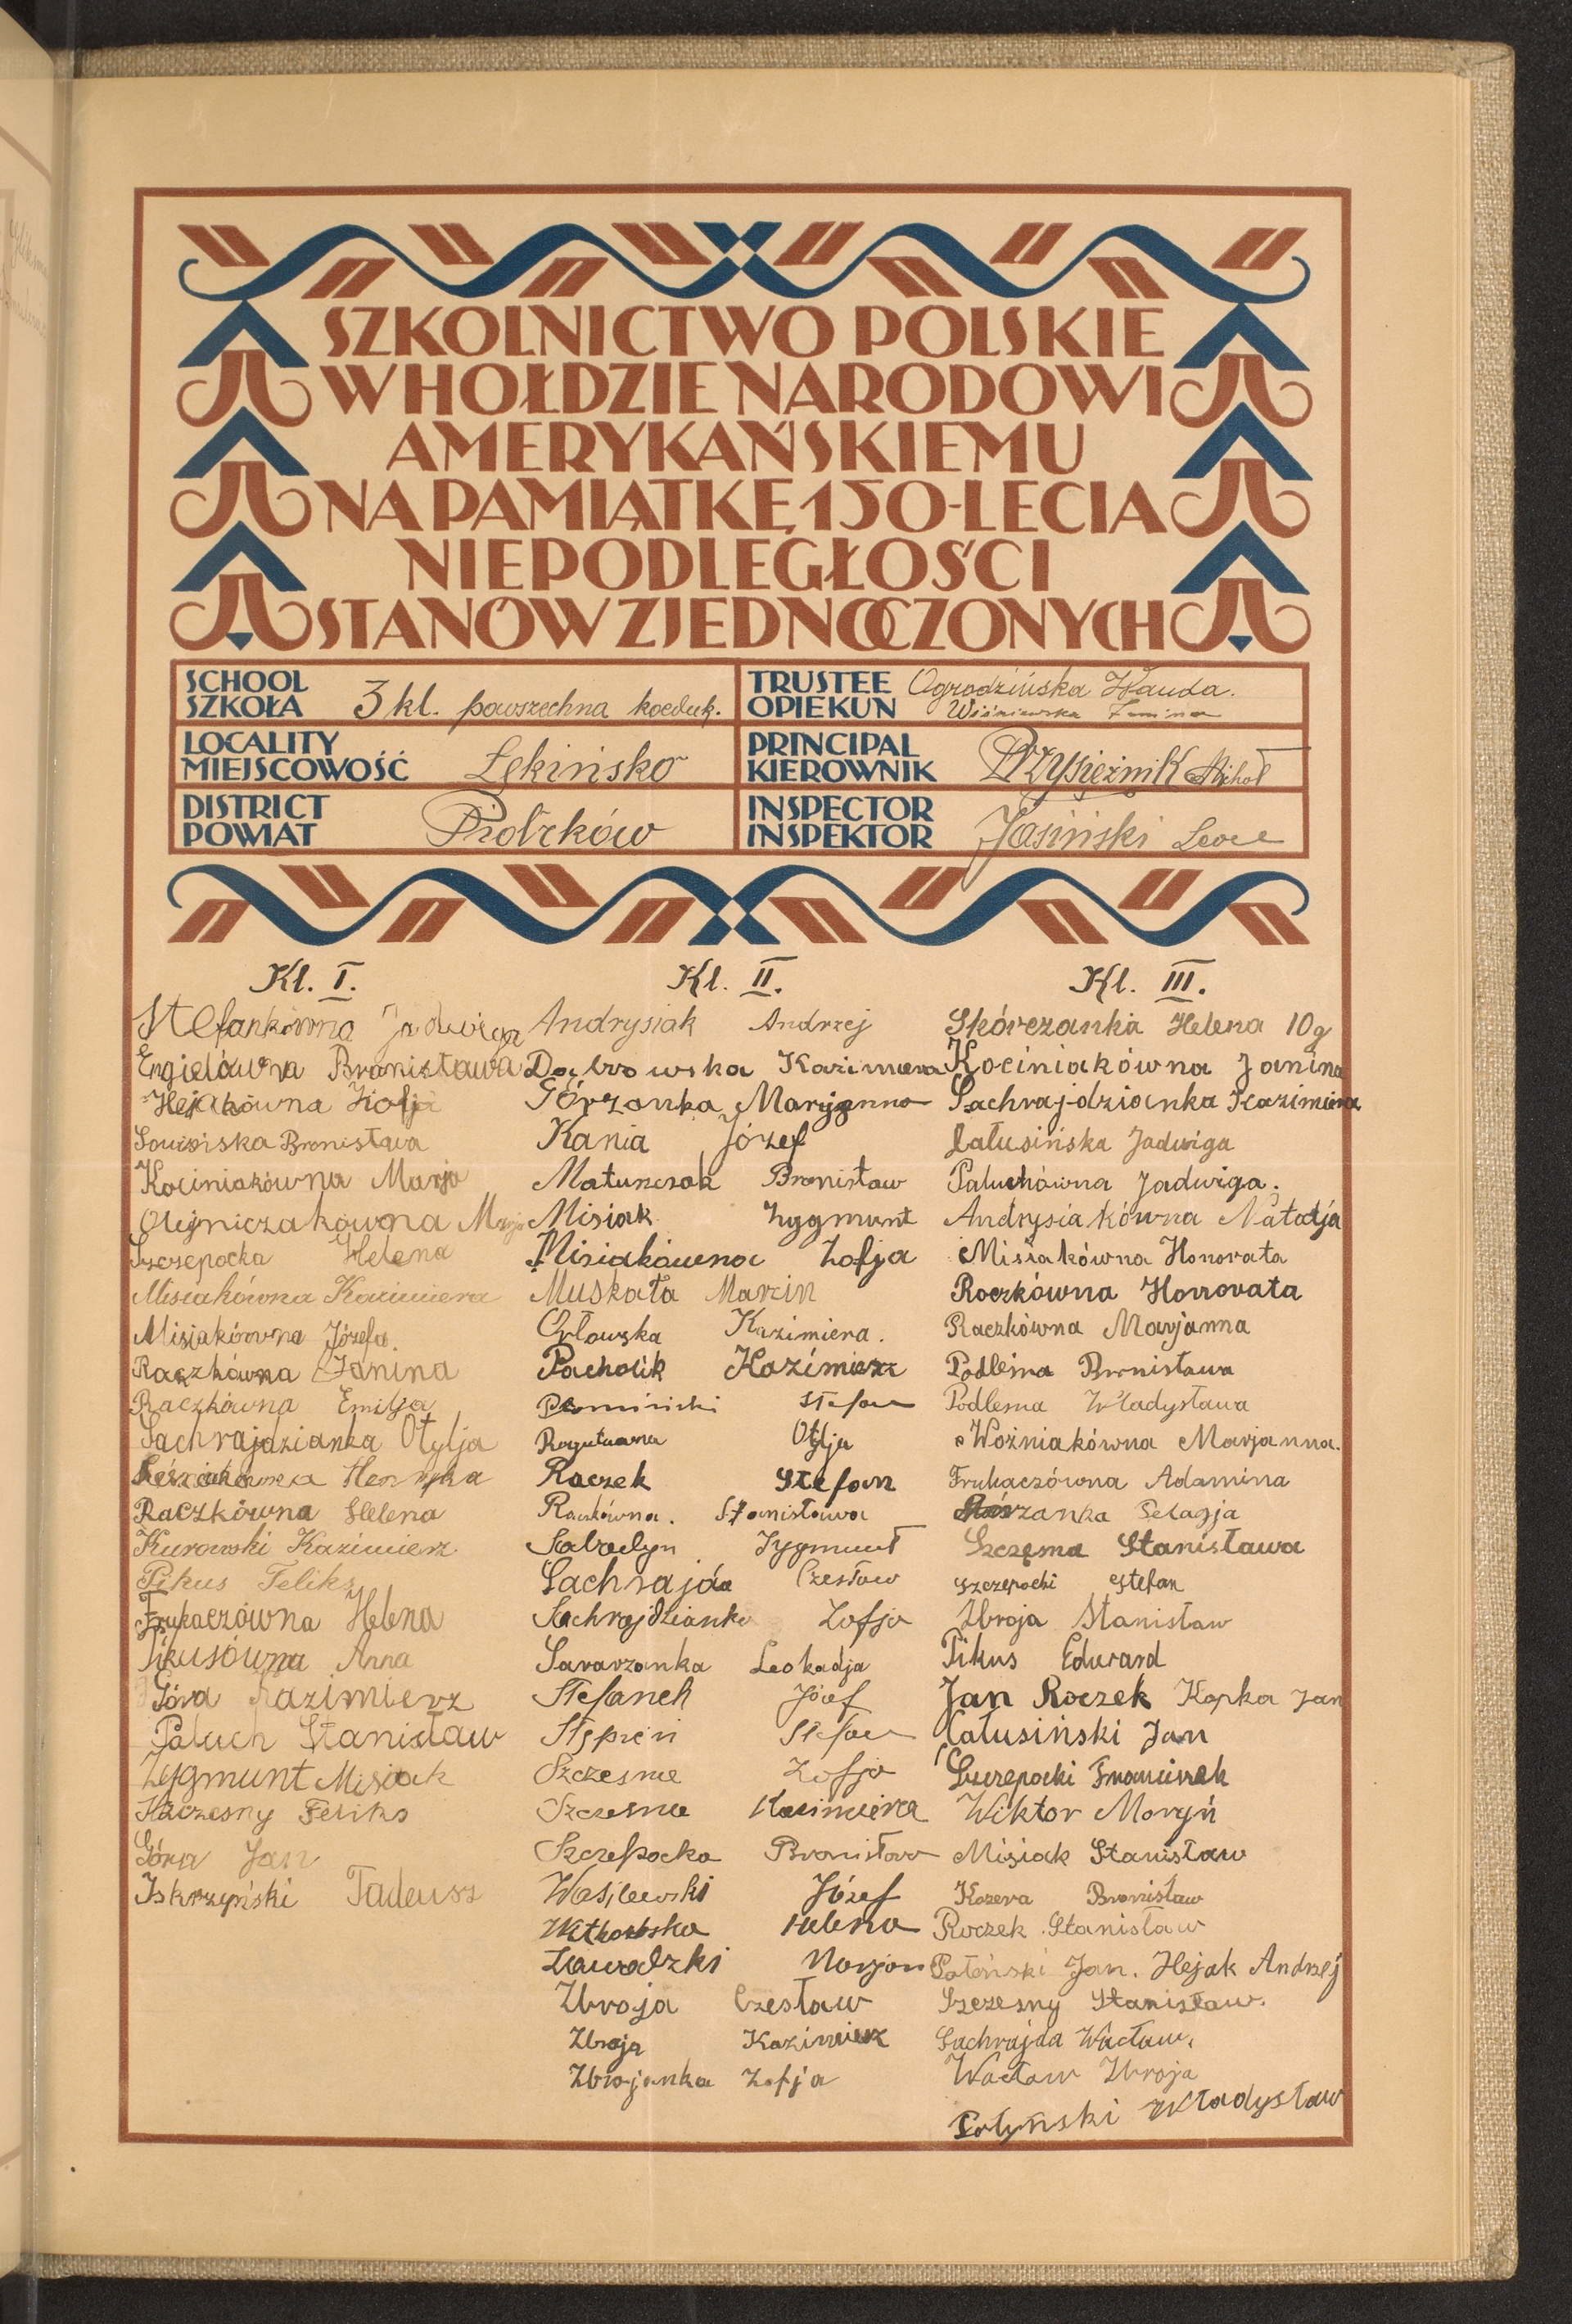 SZKOLNICTWO POLSKIE
W HOŁDZIE NARODOWI
AMERYKAŃSKIEMU
NA PAMIĄTKĘ 150-LECIA
NIEPODLEGŁOŚCI
STANÓW ZJEDNOCZONYCH
SCHOOL
SZKOŁA
3 kl. powszechna koeduk.
TRUSTEE
OPIEKUN
Ogrodzińska Wanda.
Wiśniewska Janina
LOCALITY
MIEJSCOWOŚĆ
Łękińsko
PRINCIPAL
KIEROWNIK
Przysiężnik Michał
DISTRICT
POWIAT
Piotrków
INSPECTOR
INSPEKTOR
Jasiński Leon
Kl. I.
Stefankówna Jadwiga
Engielówna Bronisława
Hejakówna Zofja
Bronisława
Kociniakówna Marja
Olejniczakówna Marja
Szczepocka Helena
Misiakówna Kazimiera
Misiakówna Józefa.
Raczkówna Janina
Raczkówna Emilja
Sachrajdzianka Otylja
Henryka
Raczkówna Helena
Kurowski Kazimierz
Pikus Feliks
Frukaczówna Helena
Pikusówna Anna
Góra Kazimierz
Paluch Stanisław
Zygmunt Misiak
Szczesny Feliks
Góra Jan
Iskrzyński Tadeusz
Kl. II.
Andrysiak Andrzej
Dąbrowska Kazimiera
Górzanka Marjanna
Kania Józef
Matuszczak Bronisław
Misiak Zygmunt
Misiakówna Zofja
Muskała Marcin
Orłowska Kazimiera.
Pacholik Kazimierz
Stefan
Otylja
Raczek Stefan
Raczkówna. Stanisława
Zygmunt
Sachrajda Czesław
Sachrajdzianka Zofja
Sararzanka Leokadja
Stefanek Józef
Stępień Stefan
Szczesna Zofja
Szczesna Kazimiera
Szczepocka Bronisława
Wasilewski Józef
Witkowska Helena
Zawadzki Marjan
Zbroja Czesław
Zbroja Kazimierz
Zbrojanka Zofja
Kl. III.
Skórczanka Helena 10g
Kociniakówna Janina
Sachrajdzianka Kazimiera
Całusińska Jadwiga
Paluchówna Jadwiga.
Andrysiakówna Natalja
Misiakówna Honorata
Roczkówna Honorata
Raczkówna Marjanna
Podlesna Bronisława
Podlesna Władysława
Woźniakówna Marjanna.
Frukaczówna Adamina
Pelagja
Szczęsna Stanisława
Szczepocki Stefan
Zbroja Stanisław
Pikus Edward
Jan Roczek Kopka Jan
Całusiński Jan
Szczepocki Franciszek
Wiktor Moryń
Misiak Stanisław
Kozera Bronisław
Roczek Stanisław
Jan. Hejak Andrzej
Szczesny Stanisław.
Sachrajda Wacław.
Wacław Zbroja
Władysław